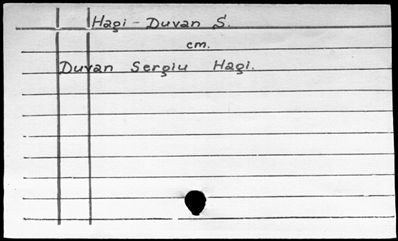 Hagi - Duvan S.
cm.
Duvan Sergiu Hagi.